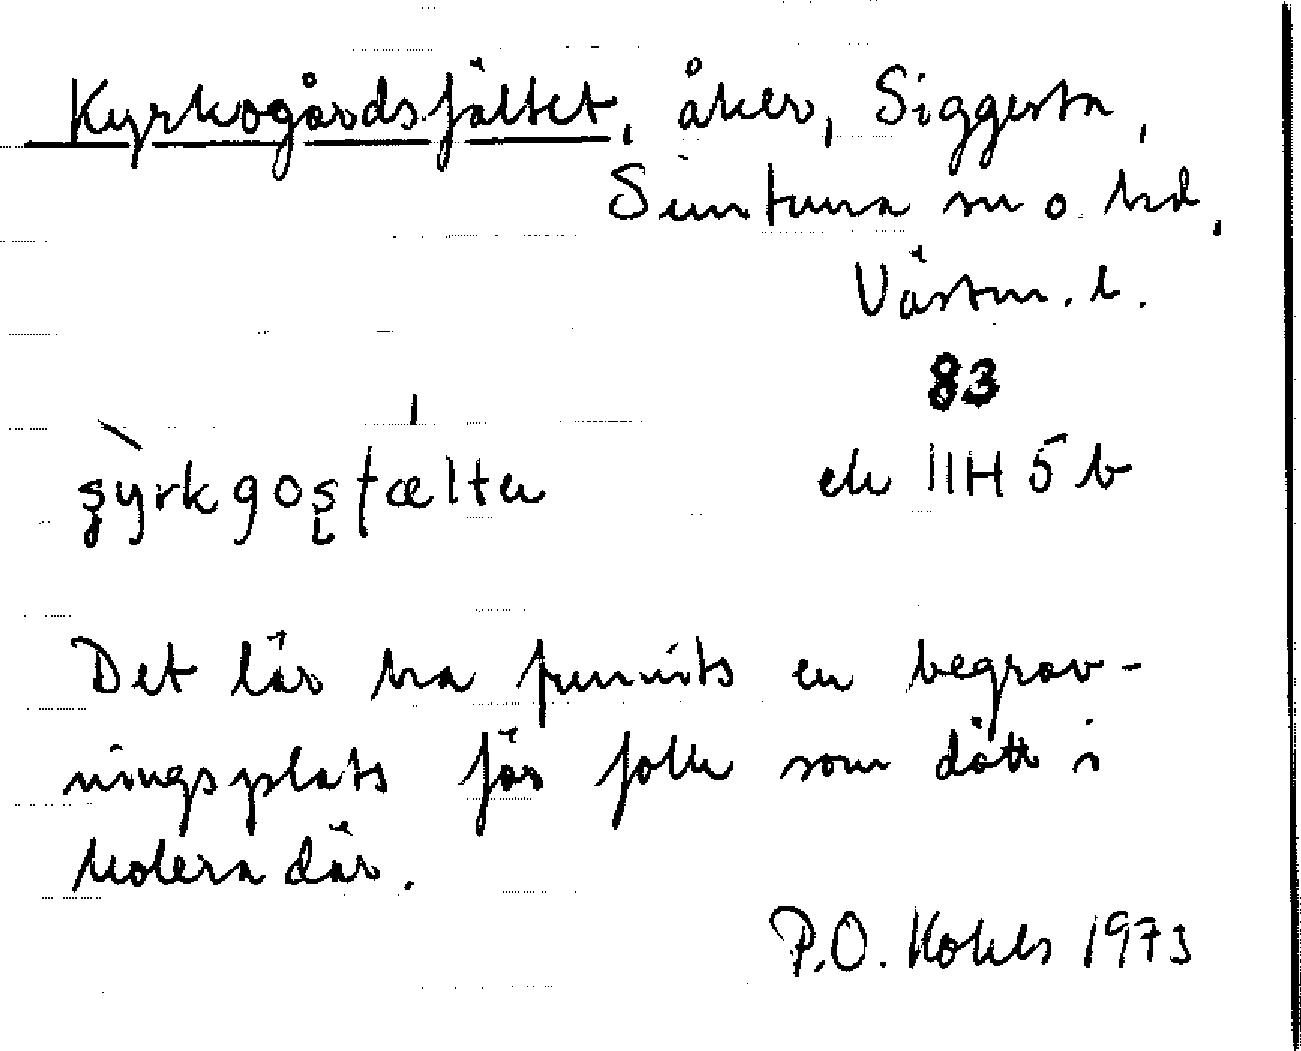 Kyrkogårdsfältet, åker, Siggesta,
Simtuna sn o. hd,
Västm. l.
83
ek 11H 5 b
Det lär ha funnits en begrav-
ningsplats för folk som dött i
kolera där.
P.O. Kohls 1973